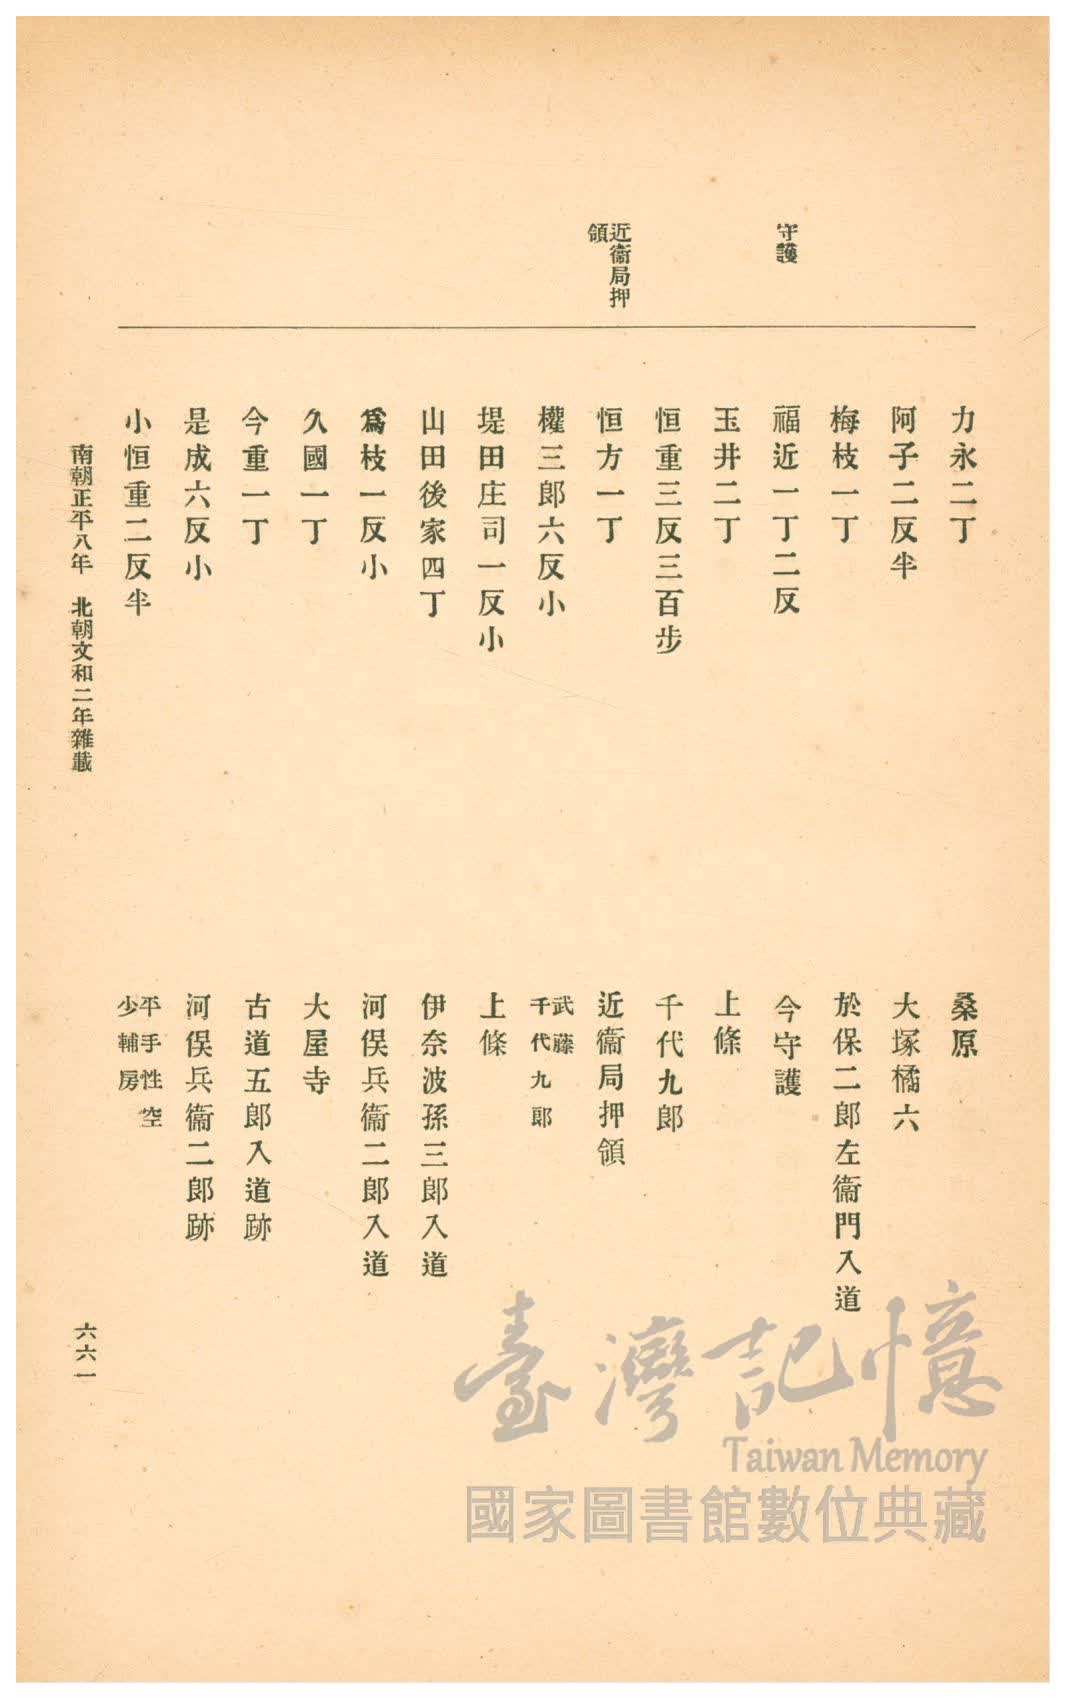 守護
近衞局押
領
力永二丁
桑原
阿子二反半
大塚橘六
梅枝一丁
於保二郎左衞門入道
福近一丁二反
今守護
玉井二丁
上條
恒重三反三百步
千代九郎
恒方一丁
近衞局押領
權三郎六反小
武藤
千代九郎
堤田庄司一反小
上條
山田後家四丁
伊奈波孫三郎入道
爲枝一反小
河俣兵衞二郎入道
久國一丁
大屋寺
今重一丁
古道五郎入道跡
是成六反小
河俣兵衞二郎跡
小恒重二反半
平手性空
少輔房
南朝正平八年 北朝文和二年雜載
六六一
臺灣記憶
Taiwan Memory
國家圖書館數位典藏